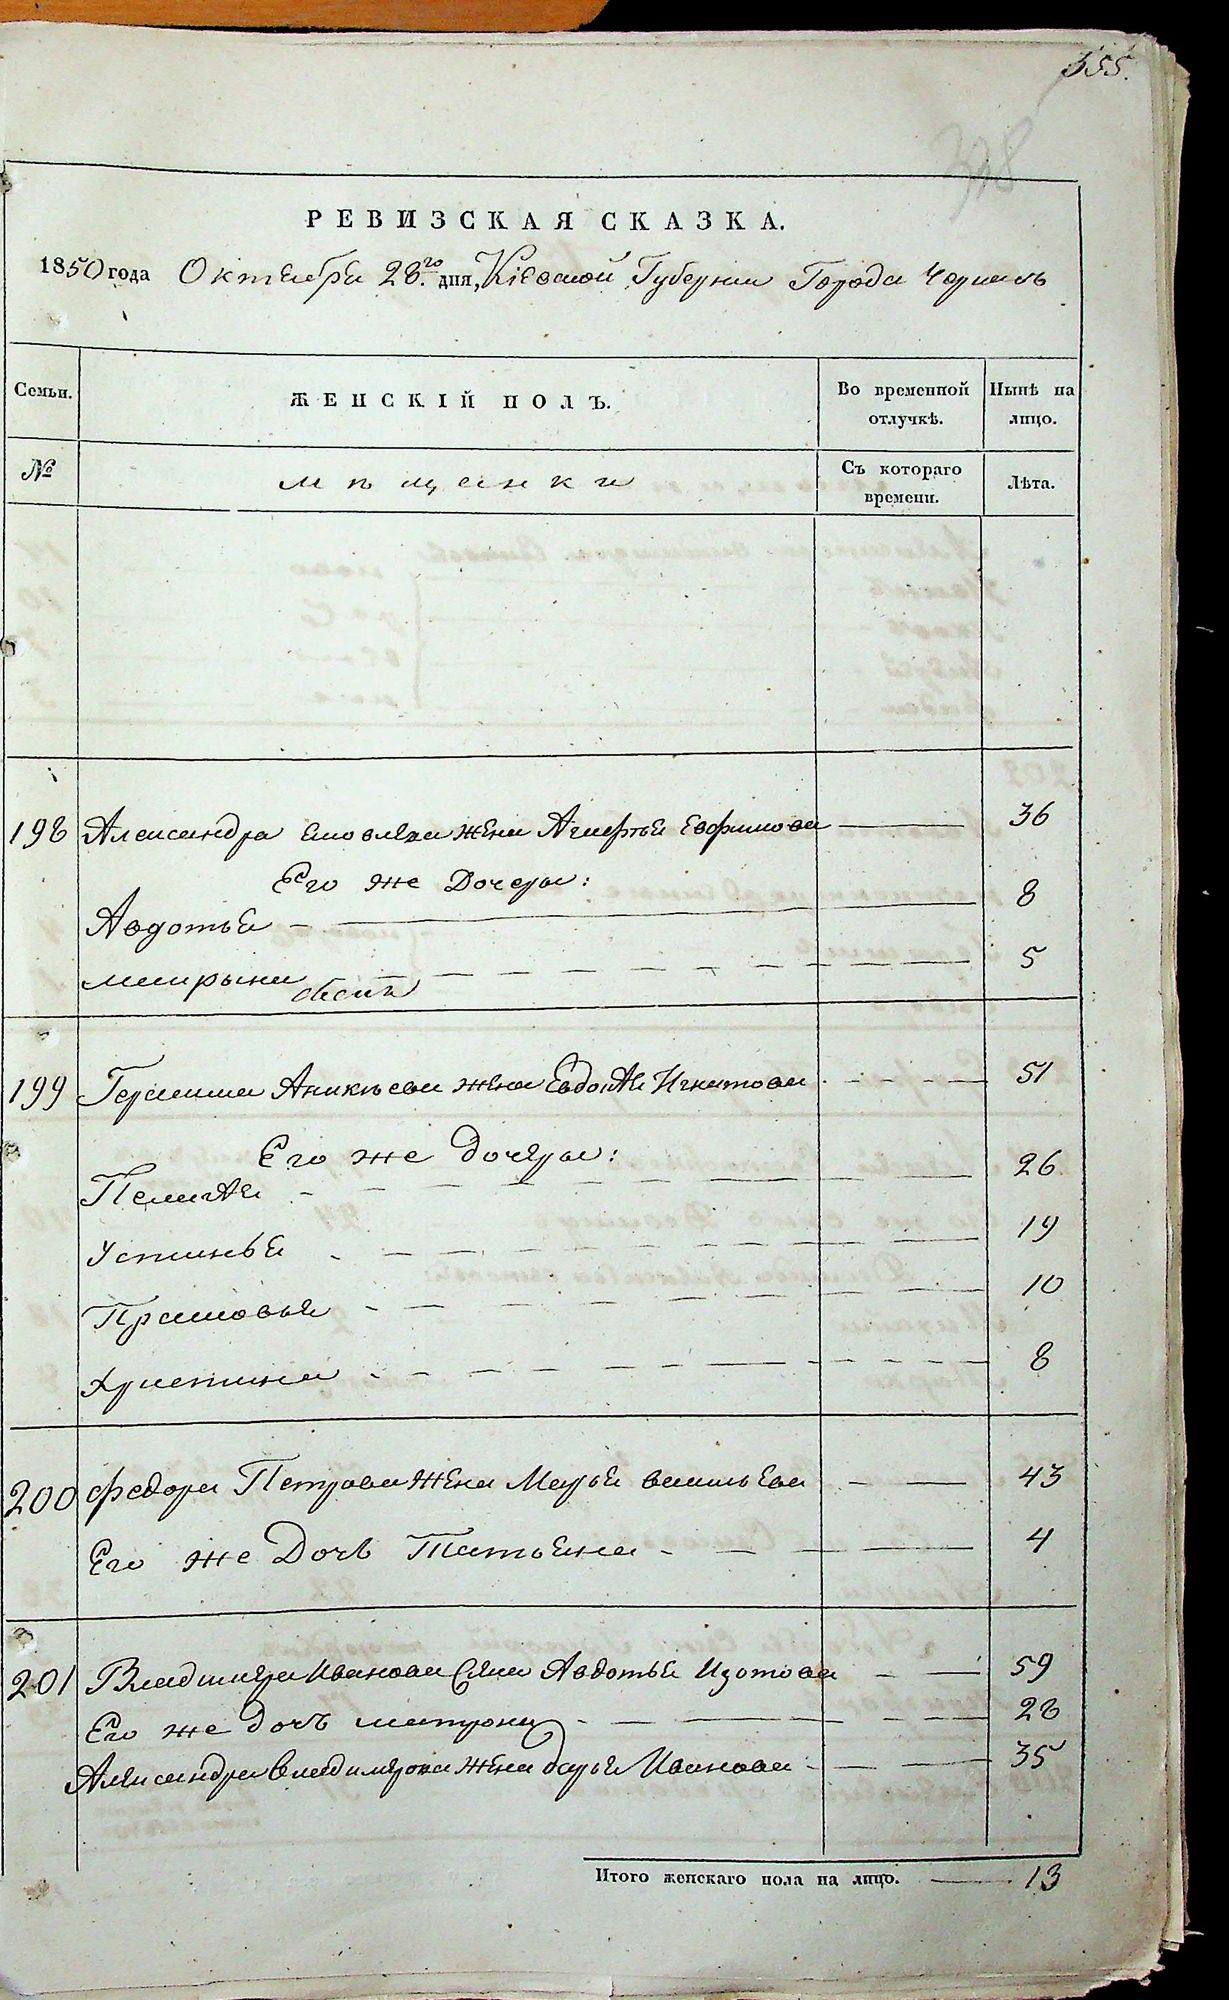 355.
328
РЕВИЗСКАЯ СКАЗКА.
1850 года Октября 28.го дня, Кіевской Губерніи Города Чоркасъ
Семьи.
ЖЕНСКІЙ ПОЛЪ.
Во временной отлучкѣ.
Нынѣ на лицо.
№
мѣщанки
Съ котораго времени.
Лѣта.
198 Александра Яковлева жена Агафья Ефимова 36
Его же Дочери:
Авдотья 8
5
199 Герасима Аникѣева жена Евдокія Игнатова 51
Его же дочери:
Пелагія 26
Устинья 19
Прасковья 10
Христина 8
200 Федора Петрова жена Марья Васильева 43
Его же Дочь Татьяна 4
201 Владимира Иванова жена Авдотья Изотова 59
Его же дочь матрона 28
Александра Владимирова жена дарья Иванова 35
Итого женскаго пола на лицо. 13